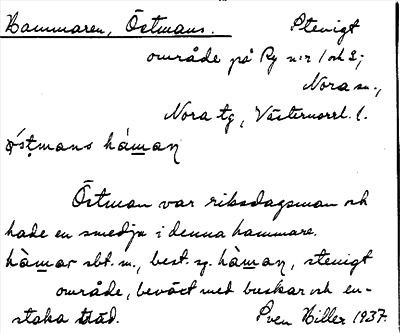 Hammaren, Östmans. Stenigt
område på Ry n:r 1 och 2;
Nora sn.,
Nora tg, Västernorrl. l.
östmans hámaņ
Östman var riksdagsman och
hade en smedja i denna hammare.
hàmar sbt. m., best. sg. hàmaņ, stenigt
område, beväxt med buskar och en-
staka träd. Sven Hiller 1937.